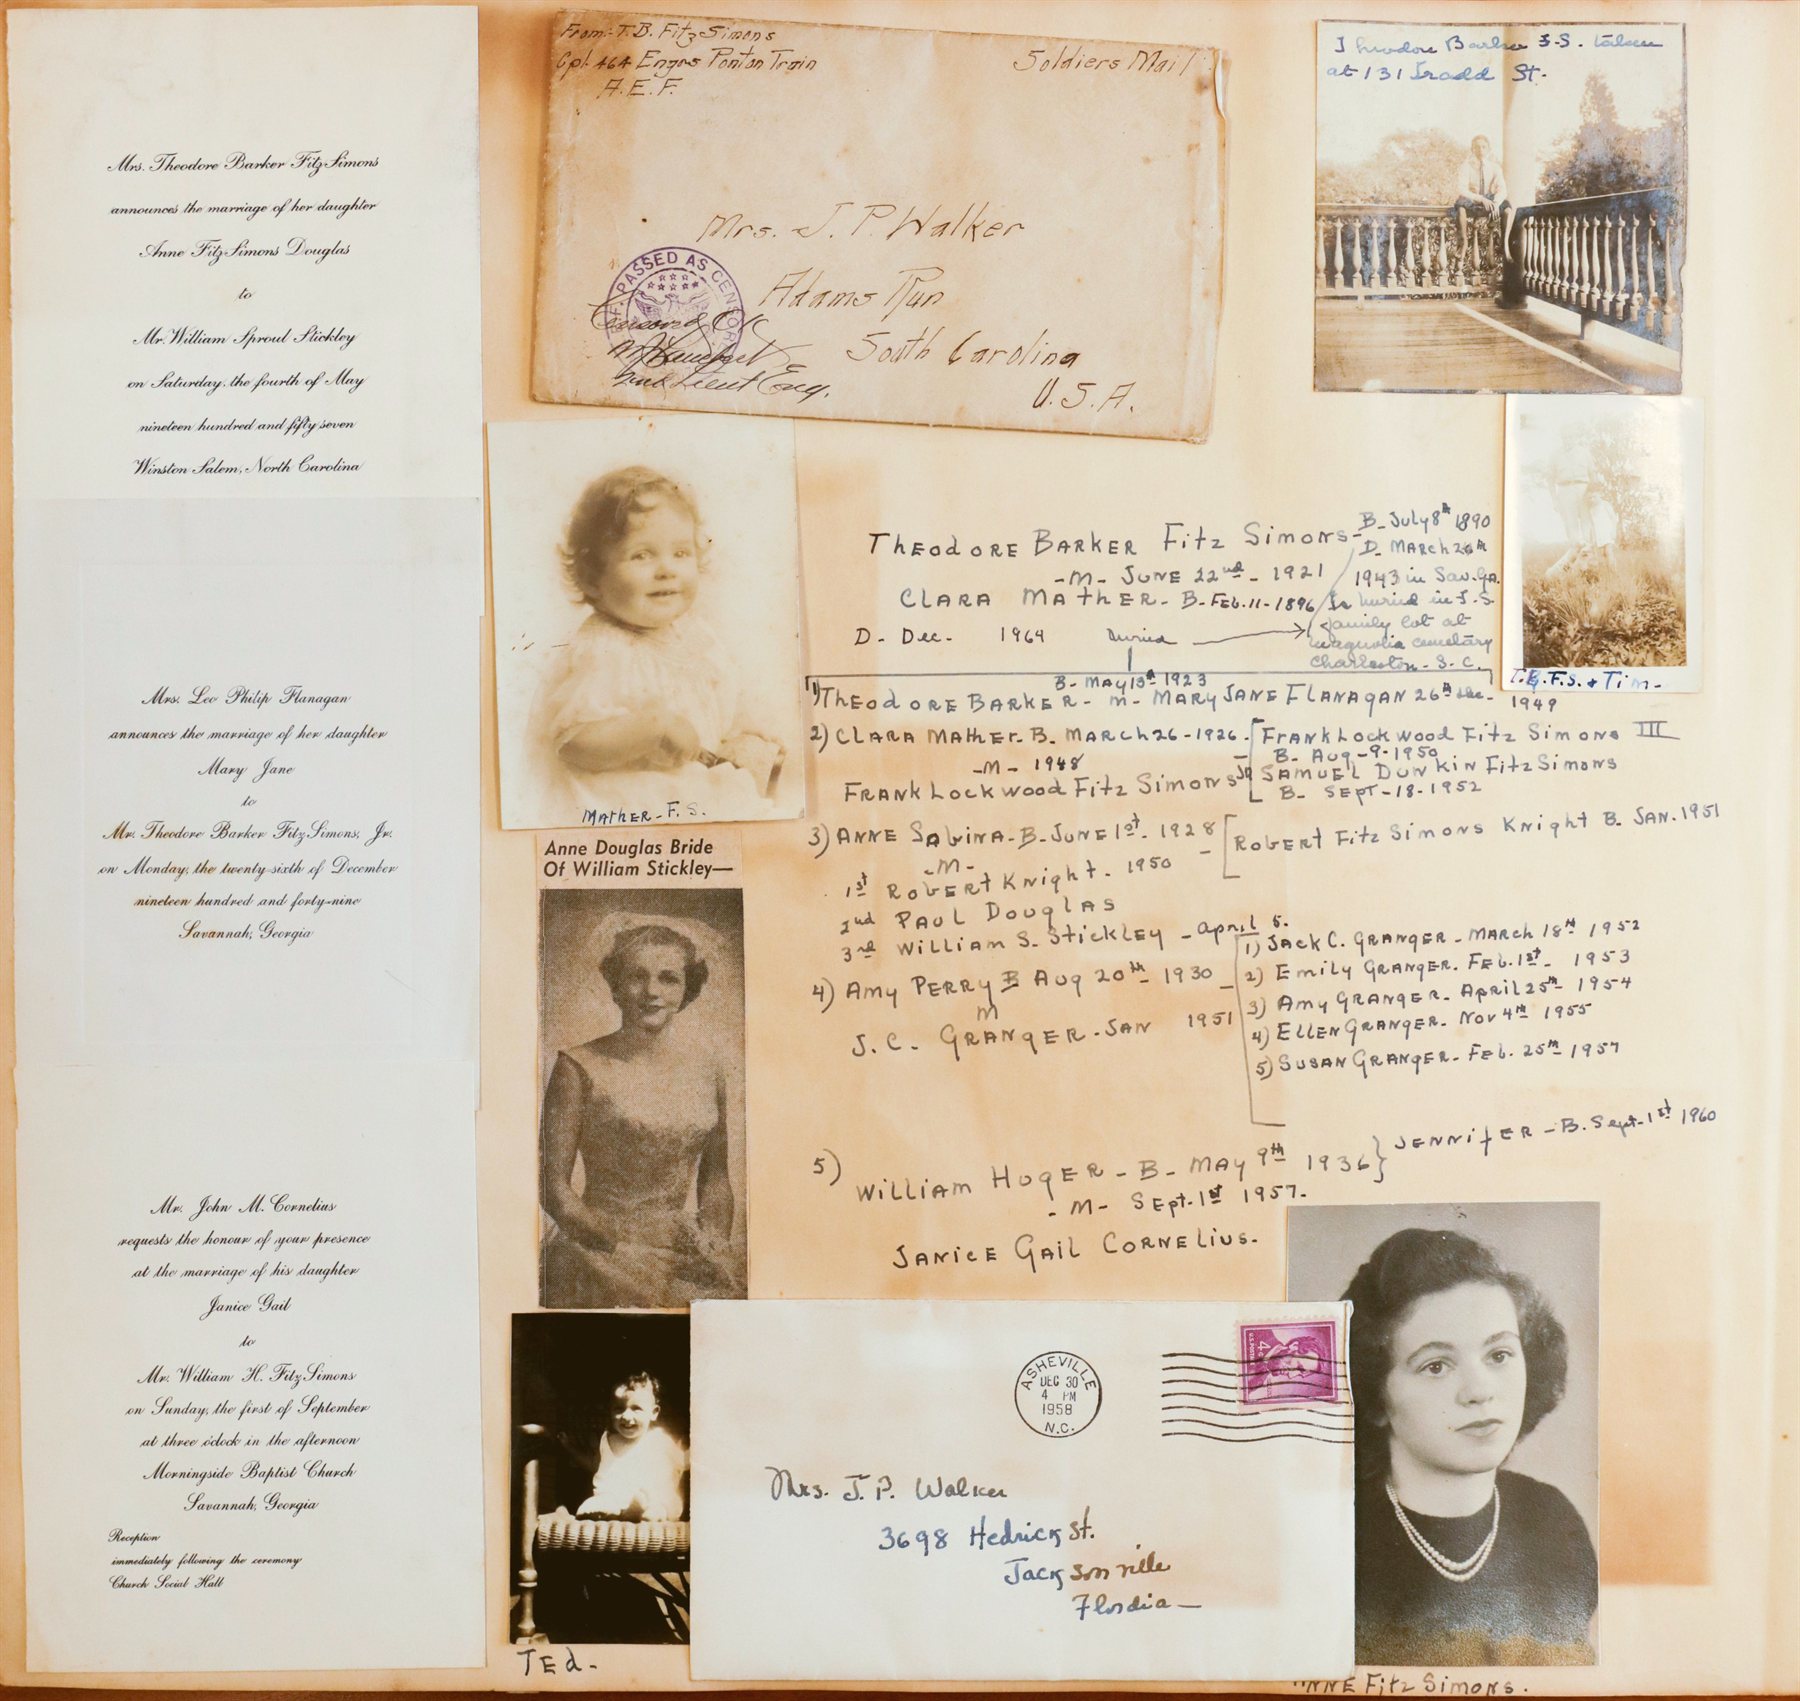 Mrs. Theodore Barker FitzSimons
announces the marriage of her daughter
Anne FitzSimons Douglas
to
Mr. William Sproul Stickley
on Saturday, the fourth of May
nineteen hundred and fifty seven
Winston Salem, North Carolina
Mrs. Leo Philip Flanagan
announces the marriage of her daughter
Mary Jane
to
Mr. Theodore Barker FitzSimons, Jr.
on Monday, the twenty-sixth of December
nineteen hundred and forty-nine
Savannah, Georgia
Mr. John M. Cornelius
requests the honour of your presence
at the marriage of his daughter
Janice Gail
to
Mr. William H. FitzSimons
on Sunday, the first of September
at three o'clock in the afternoon
Morningside Baptist Church
Savannah, Georgia
Reception
immediately following the ceremony
Church Social Hall
From:- T. B. FitzSimons
Cpl. 464 Engrs Ponton Train
A. E. F.
Soldiers Mail
Mrs. J. P. Walker
Adams Run
South Carolina
U. S. A.
PASSED AS CENSORED
Censored OK
Lieut Eng.
Theodore Barker F.S. taken
at 131 Tradd St.
T.B.F.S. + Tim-
Mather-F.S.
Anne Douglas Bride
Of William Stickley—
Theodore Barker Fitz Simons- B- July 8th 1890
D- March 26th
1943 in Sav. Ga.
Is buried in F.S.
family lot at
Magnolia cemetary
Charleston- S.C.
-M- June 22nd- 1921
Clara Mather- B- Feb. 11-1896
D- Dec- 1964 buried
B- May 13th 1923
1) Theodore Barker- m- Mary Jane Flanagan 26th Dec- 1949
2) Clara Mather- B. March 26-1926-
-M- 1948
Frank Lockwood Fitz Simons Jr
Frank Lockwood Fitz Simons III
B- Aug-9-1950
Samuel Dunkin FitzSimons
B- Sept-18-1952
3) Anne Sabina-B-June 1st- 1928 -
-M-
1st Robert Knight- 1950
2nd Paul Douglas
3rd William S. Stickley - April 5.
Robert Fitz Simons Knight B. Jan. 1951
4) Amy Perry B Aug 20th- 1930 -
M
J. C. Granger-Jan 1951
1) Jack C. Granger- March 18th 1952
2) Emily Granger. Feb. 1st- 1953
3) Amy Granger- April 25th- 1954
4) Ellen Granger- Nov 4th 1955
5) Susan Granger- Feb. 25th- 1957
5) William Huger- B- May 9th 1936 } Jennifer-B. Sept-1st 1960
-M- Sept-1st 1957-
Janice Gail Cornelius-
Ted-
ASHEVILLE
DEC 30
4 PM
1958
N.C.
U.S. POSTAGE
4¢
Mrs. J. P. Walker
3698 Hedrick St.
Jacksonville
Florida-
Anne Fitz Simons.